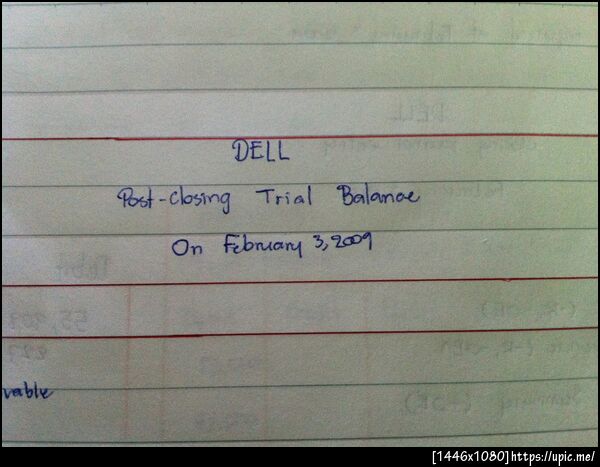 DELL
Post-Closing Trial Balance
On February 3, 2009
vable
[1446x1080]https://upic.me/